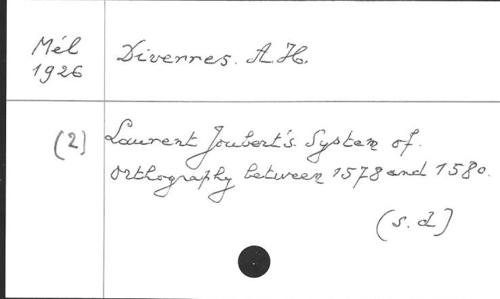 Mél Diverres. A.H.
1926
(2) Laurent Joubert's System of.
Orthography between 1578 and 1580.
(s.d)